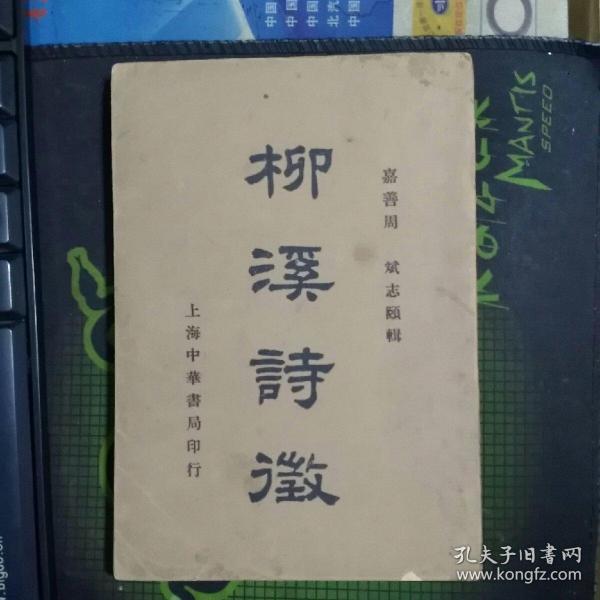 嘉善周 斌志頤輯
柳溪詩徵
上海中華書局印行
MANTIS
SPEED
孔夫子旧书网
www.kongfz.com